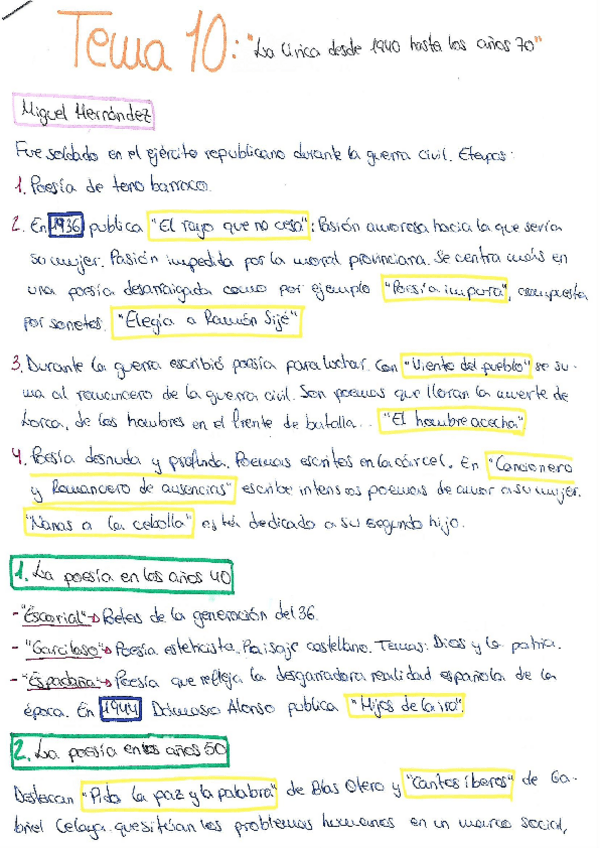 Tema 10: "La lírica desde 1940 hasta los años 70"
Miguel Hernández
Fue soldado en el ejército republicano durante la guerra civil. Etapas:
1. Poesía de tono barroco.
2. En 1936 publica "El rayo que no cesa": Pasión amorosa hacia la que sería
su mujer. Pasión impedida por la moral provinciana. Se centra más en
una poesía desarraigada como por ejemplo "Poesía impura", compuesta
por sonetos. "Elegía a Ramón Sijé"
3. Durante la guerra escribió poesía para luchar. Con "Viento del pueblo" se su-
ma al romancero de la guerra civil. Son poemas que lloran la muerte de
Lorca, de los hombres en el frente de batalla... "El hombre acecha"
4. Poesía desnuda y profunda. Poemas escritos en la cárcel. En "Cancionero
y Romancero de ausencias" escribe intensos poemas de amor a su mujer.
"Nanas a la cebolla" está dedicado a su segundo hijo.
1. La poesía en los años 40
- "Escorial" → Poetas de la generación del 36.
- "Garcilaso" → Poesía esteticista. Paisaje castellano. Temas: Dios y la patria.
- "Espadaña" → Poesía que refleja la desgarradora realidad española de la
época. En 1944 Dámaso Alonso publica "Hijos de la ira".
2. La poesía en los años 50
Destacan "Pido la paz y la palabra" de Blas Otero y "Cantos íberos" de Ga-
briel Celaya. que sitúan los problemas humanos en un marco social,